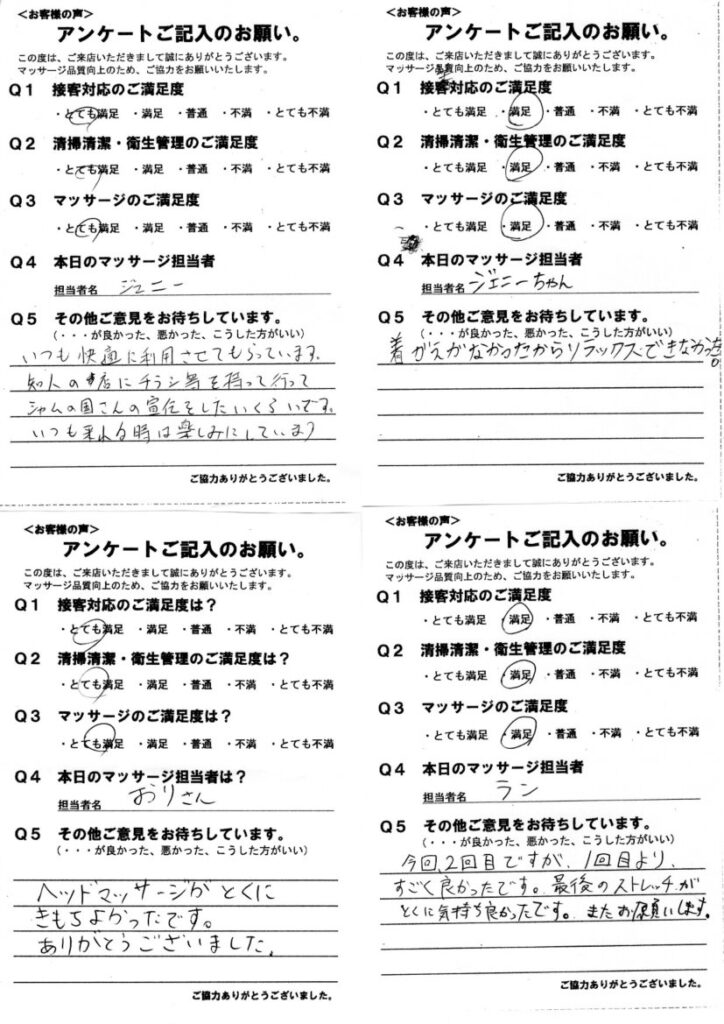 <お客様の声>
アンケートご記入のお願い。
この度は、ご来店いただきまして誠にありがとうございます。
マッサージ品質向上のため、ご協力をお願いいたします。
Q1 接客対応のご満足度
・とても満足 ・満足 ・普通 ・不満 ・とても不満
Q2 清掃清潔・衛生管理のご満足度
・とても満足 ・満足 ・普通 ・不満 ・とても不満
Q3 マッサージのご満足度
・とても満足 ・満足 ・普通 ・不満 ・とても不満
Q4 本日のマッサージ担当者
担当者名 ジェニー
Q5 その他ご意見をお待ちしています。
(・・・が良かった、悪かった、こうした方がいい)
いつも快適に利用させてもらっています。
知人の店にチラシ等を持って行って
シャムの国さんの宣伝をしたいくらいです。
いつも来れる時は楽しみにしています
ご協力ありがとうございました。
<お客様の声>
アンケートご記入のお願い。
この度は、ご来店いただきまして誠にありがとうございます。
マッサージ品質向上のため、ご協力をお願いいたします。
Q1 接客対応のご満足度
・とても満足 ・満足 ・普通 ・不満 ・とても不満
Q2 清掃清潔・衛生管理のご満足度
・とても満足 ・満足 ・普通 ・不満 ・とても不満
Q3 マッサージのご満足度
・とても満足 ・満足 ・普通 ・不満 ・とても不満
Q4 本日のマッサージ担当者
担当者名 ジェニーちゃん
Q5 その他ご意見をお待ちしています。
(・・・が良かった、悪かった、こうした方がいい)
着がえがなかったからリラックスできなかった。
ご協力ありがとうございました。
<お客様の声>
アンケートご記入のお願い。
この度は、ご来店いただきまして誠にありがとうございます。
マッサージ品質向上のため、ご協力をお願いいたします。
Q1 接客対応のご満足度は?
・とても満足 ・満足 ・普通 ・不満 ・とても不満
Q2 清掃清潔・衛生管理のご満足度は?
・とても満足 ・満足 ・普通 ・不満 ・とても不満
Q3 マッサージのご満足度は?
・とても満足 ・満足 ・普通 ・不満 ・とても不満
Q4 本日のマッサージ担当者は?
担当者名 おりさん
Q5 その他ご意見をお待ちしています。
(・・・が良かった、悪かった、こうした方がいい)
ヘッドマッサージがとくに
きもちよかったです。
ありがとうございました.
ご協力ありがとうございました。
<お客様の声>
アンケートご記入のお願い。
この度は、ご来店いただきまして誠にありがとうございます。
マッサージ品質向上のため、ご協力をお願いいたします。
Q1 接客対応のご満足度
・とても満足 ・満足 ・普通 ・不満 ・とても不満
Q2 清掃清潔・衛生管理のご満足度
・とても満足 ・満足 ・普通 ・不満 ・とても不満
Q3 マッサージのご満足度
・とても満足 ・満足 ・普通 ・不満 ・とても不満
Q4 本日のマッサージ担当者
担当者名 ラン
Q5 その他ご意見をお待ちしています。
(・・・が良かった、悪かった、こうした方がいい)
今回、2回目ですが、1回目より、
すごく良かったです。最後のストレッチが
とくに気持ち良かったです。またお願いします。
ご協力ありがとうございました。